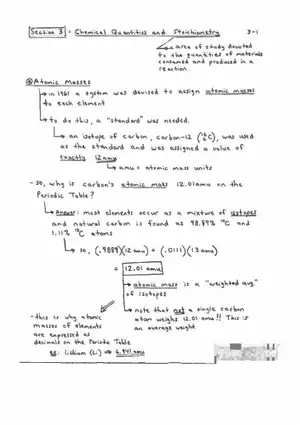 Section 3 : Chemical Quantities and Stoichiometry 3-1
area of study devoted
to the quantities of materials
consumed and produced in a
reaction.
Atomic Masses
in 1961 a system was devised to assign atomic masses
to each element
to do this, a "standard" was needed.
an isotope of carbon, carbon-12 (¹²₆C), was used
as the standard and was assigned a value of
exactly 12 amu
amu = atomic mass units
- so, why is carbon's atomic mass 12.01 amu on the
Periodic Table?
Answer: most elements occur as a mixture of isotopes
and natural carbon is found as 98.89% ¹²C and
1.11% ¹³C atoms
so, (.9889)(12 amu) + (.0111)(13 amu)
= 12.01 amu
atomic mass is a "weighted avg."
of isotopes
note that not a single carbon
atom weighs 12.01 amu!! This is
an average weight.
- this is why atomic
masses of elements
are expressed as
decimals on the Periodic Table
ex: lithium (Li) ⇒ 6.941 amu